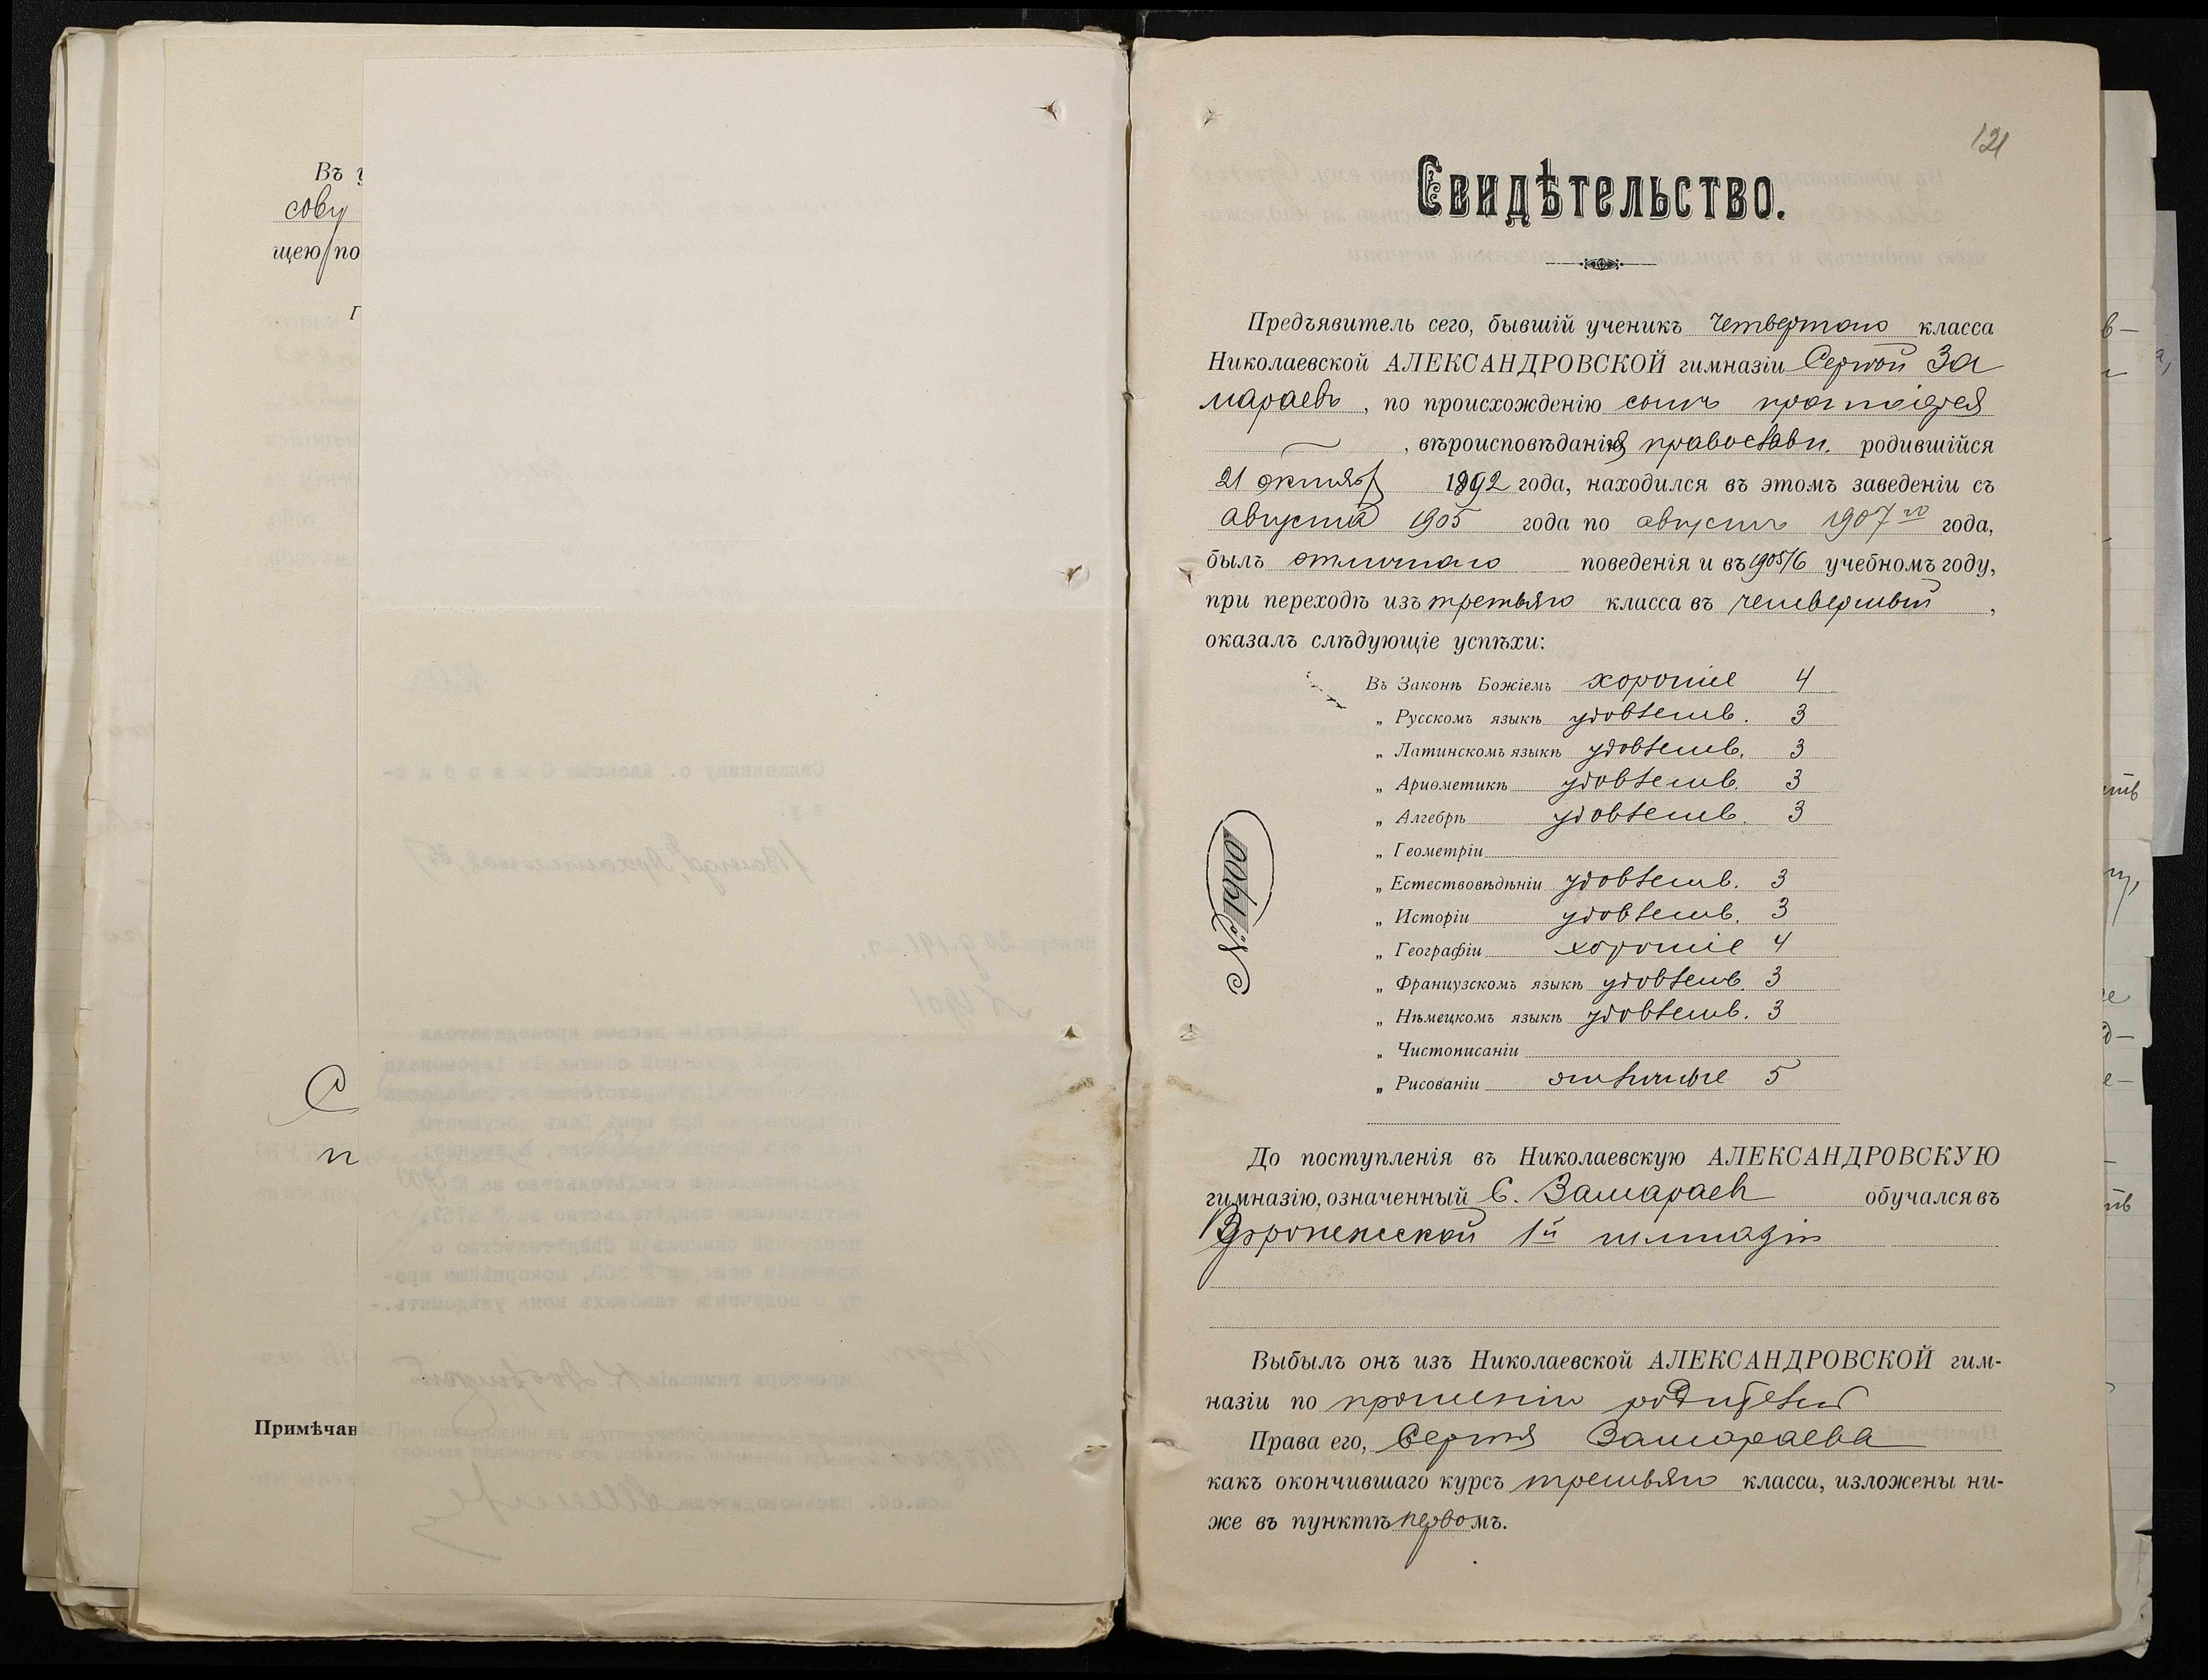 Въ у
сову
щею по
Г
С
п
Примѣчан
121
Свидѣтельство.
Предъявитель сего, бывшій ученикъ четвертаго класса
Николаевской АЛЕКСАНДРОВСКОЙ гимназіи Сергѣй За
мараевъ, по происхожденію сынъ протоіерея
, вѣроисповѣданія православн. родившійся
21 октября 1892 года, находился въ этомъ заведеніи съ
августа 1905 года по августъ 1907 го года,
былъ отличнаго поведенія и въ 1905/6 учебномъ году,
при переходѣ изъ третьяго класса въ четвертый,
оказалъ слѣдующіе успѣхи:
Въ Законѣ Божіемъ хорошіе 4
„ Русскомъ языкѣ удовлетв. 3
„ Латинскомъ языкѣ удовлетв. 3
„ Ариѳметикѣ удовлетв. 3
„ Алгебрѣ удовлетв. 3
„ Геометріи
„ Естествовѣдѣніи удовлетв. 3
„ Исторіи удовлетв. 3
„ Географіи хорошіе 4
„ Французскомъ языкѣ удовлетв. 3
„ Нѣмецкомъ языкѣ удовлетв. 3
„ Чистописаніи
„ Рисованіи отличные 5
№ 1900
До поступленія въ Николаевскую АЛЕКСАНДРОВСКУЮ
гимназію, означенный С. Замараевъ обучался въ
Воронежской 1й гимназіи
Выбылъ онъ изъ Николаевской АЛЕКСАНДРОВСКОЙ гим-
назіи по прошенію родителей
Права его, Сергѣя Замараева
какъ окончившаго курсъ третьяго класса, изложены ни-
же въ пунктѣ первомъ.